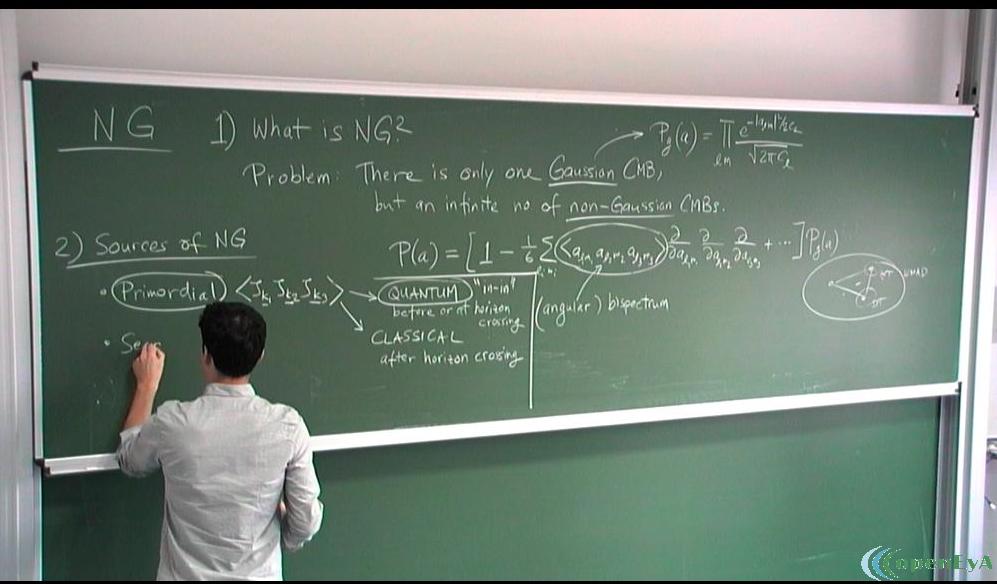 NG
1) What is NG?
P_g(a) = ∏_{lm} e^{-|a_{lm}|²/2C_l} / √(2πC_l)
Problem: There is only one Gaussian CMB,
but an infinite no of non-Gaussian CMBs.
2) Sources of NG
P(a) = [1 - 1/6 Σ_{l_i m_i} <a_{l_1m_1} a_{l_2m_2} a_{l_3m_3}> ∂/∂a_{l_1m_1} ∂/∂a_{l_2m_2} ∂/∂a_{l_3m_3} + ...] P_g(a)
(angular) bispectrum
WMAP
ΔT
• Primordial <ζ_{k1} ζ_{k2} ζ_{k3}>
QUANTUM "in-in"
before or at horizon
crossing
CLASSICAL
after horizon crossing
• Sec
openEyA